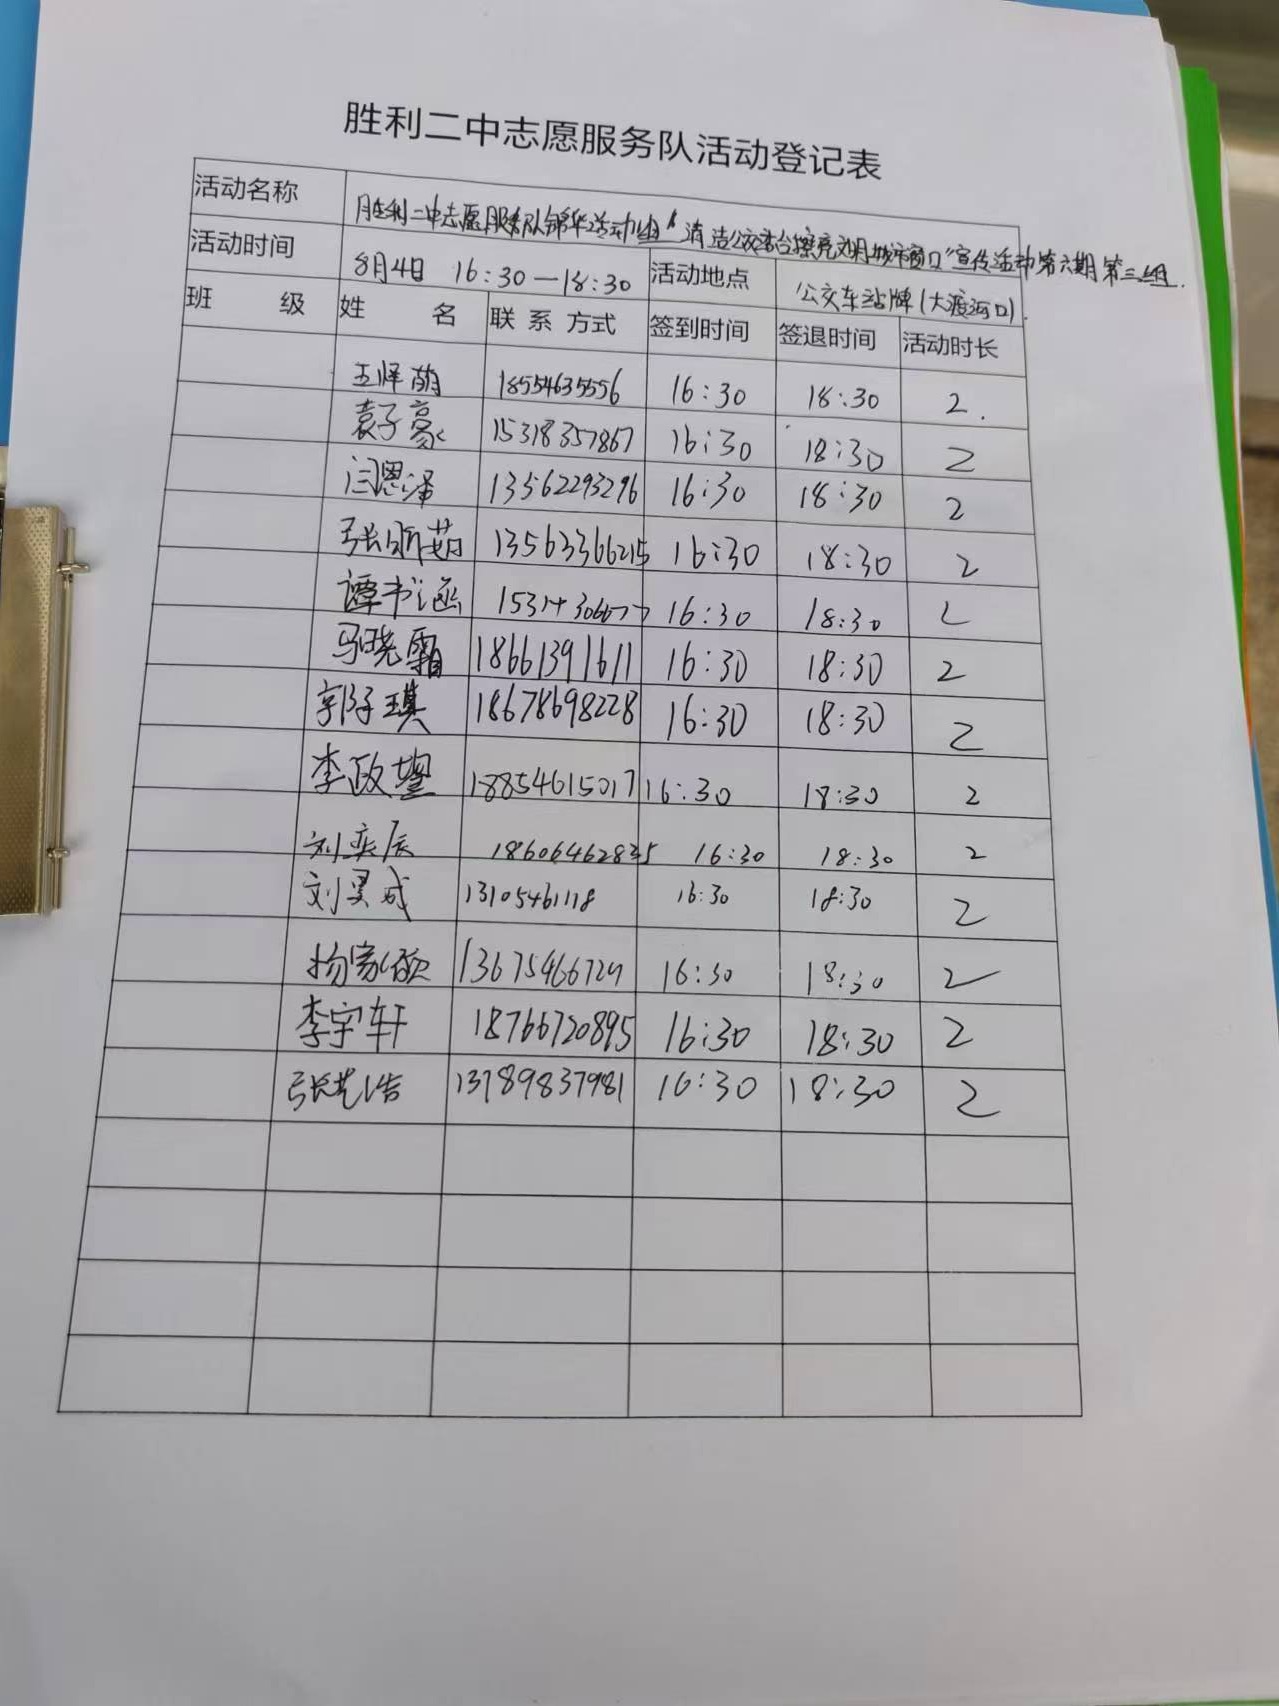 胜利二中志愿服务队活动登记表
活动名称 胜利二中志愿服务队锦华活动组"清洁公交站台擦亮文明城市窗口"宣传活动第六期第三组.
活动时间 8月4日 16:30—18:30 活动地点 公交车站牌(大渡河口).
班 级 姓 名 联系方式 签到时间 签退时间 活动时长
王怿萌 18554635556 16:30 18:30 2.
袁子豪 15318357867 16:30 18:30 2
闫恩泽 13562293296 16:30 18:30 2
张昕茹 13563366215 16:30 18:30 2
谭书涵 16:30 18:30 2
马晓霜 18661391611 16:30 18:30 2
郭子琪 18678698228 16:30 18:30 2
李政 18854615017 16:30 18:30 2
刘奕辰 16:30 18:30 2
刘昊成 13105461118 16:30 18:30 2
杨家硕 16:30 18:30 2
李宇轩 18766720895 16:30 18:30 2
张艺浩 13789837981 16:30 18:30 2